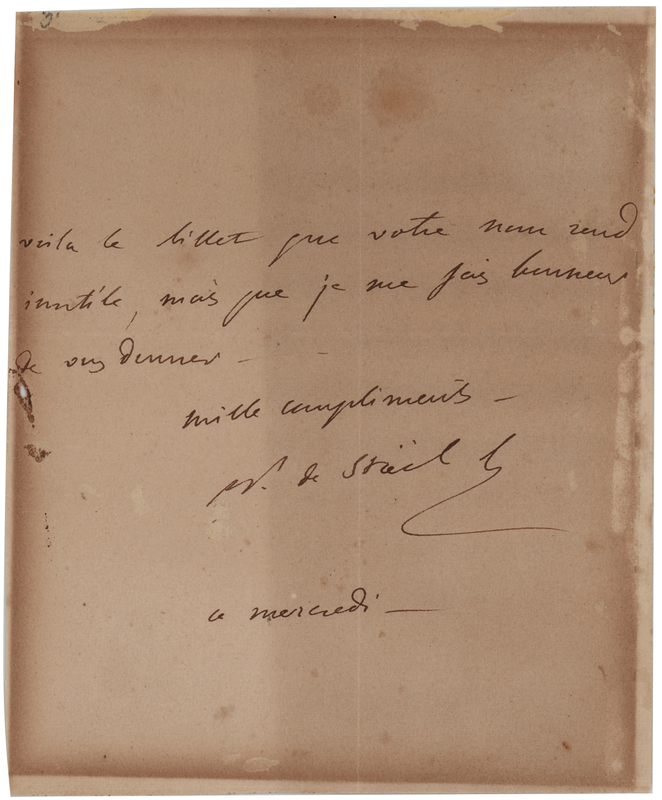 voila le billet que votre nom rend
inutile, mais que je me fais honneur
de vous donner -
mille compliments -
de Stäel h
ce mercredi -